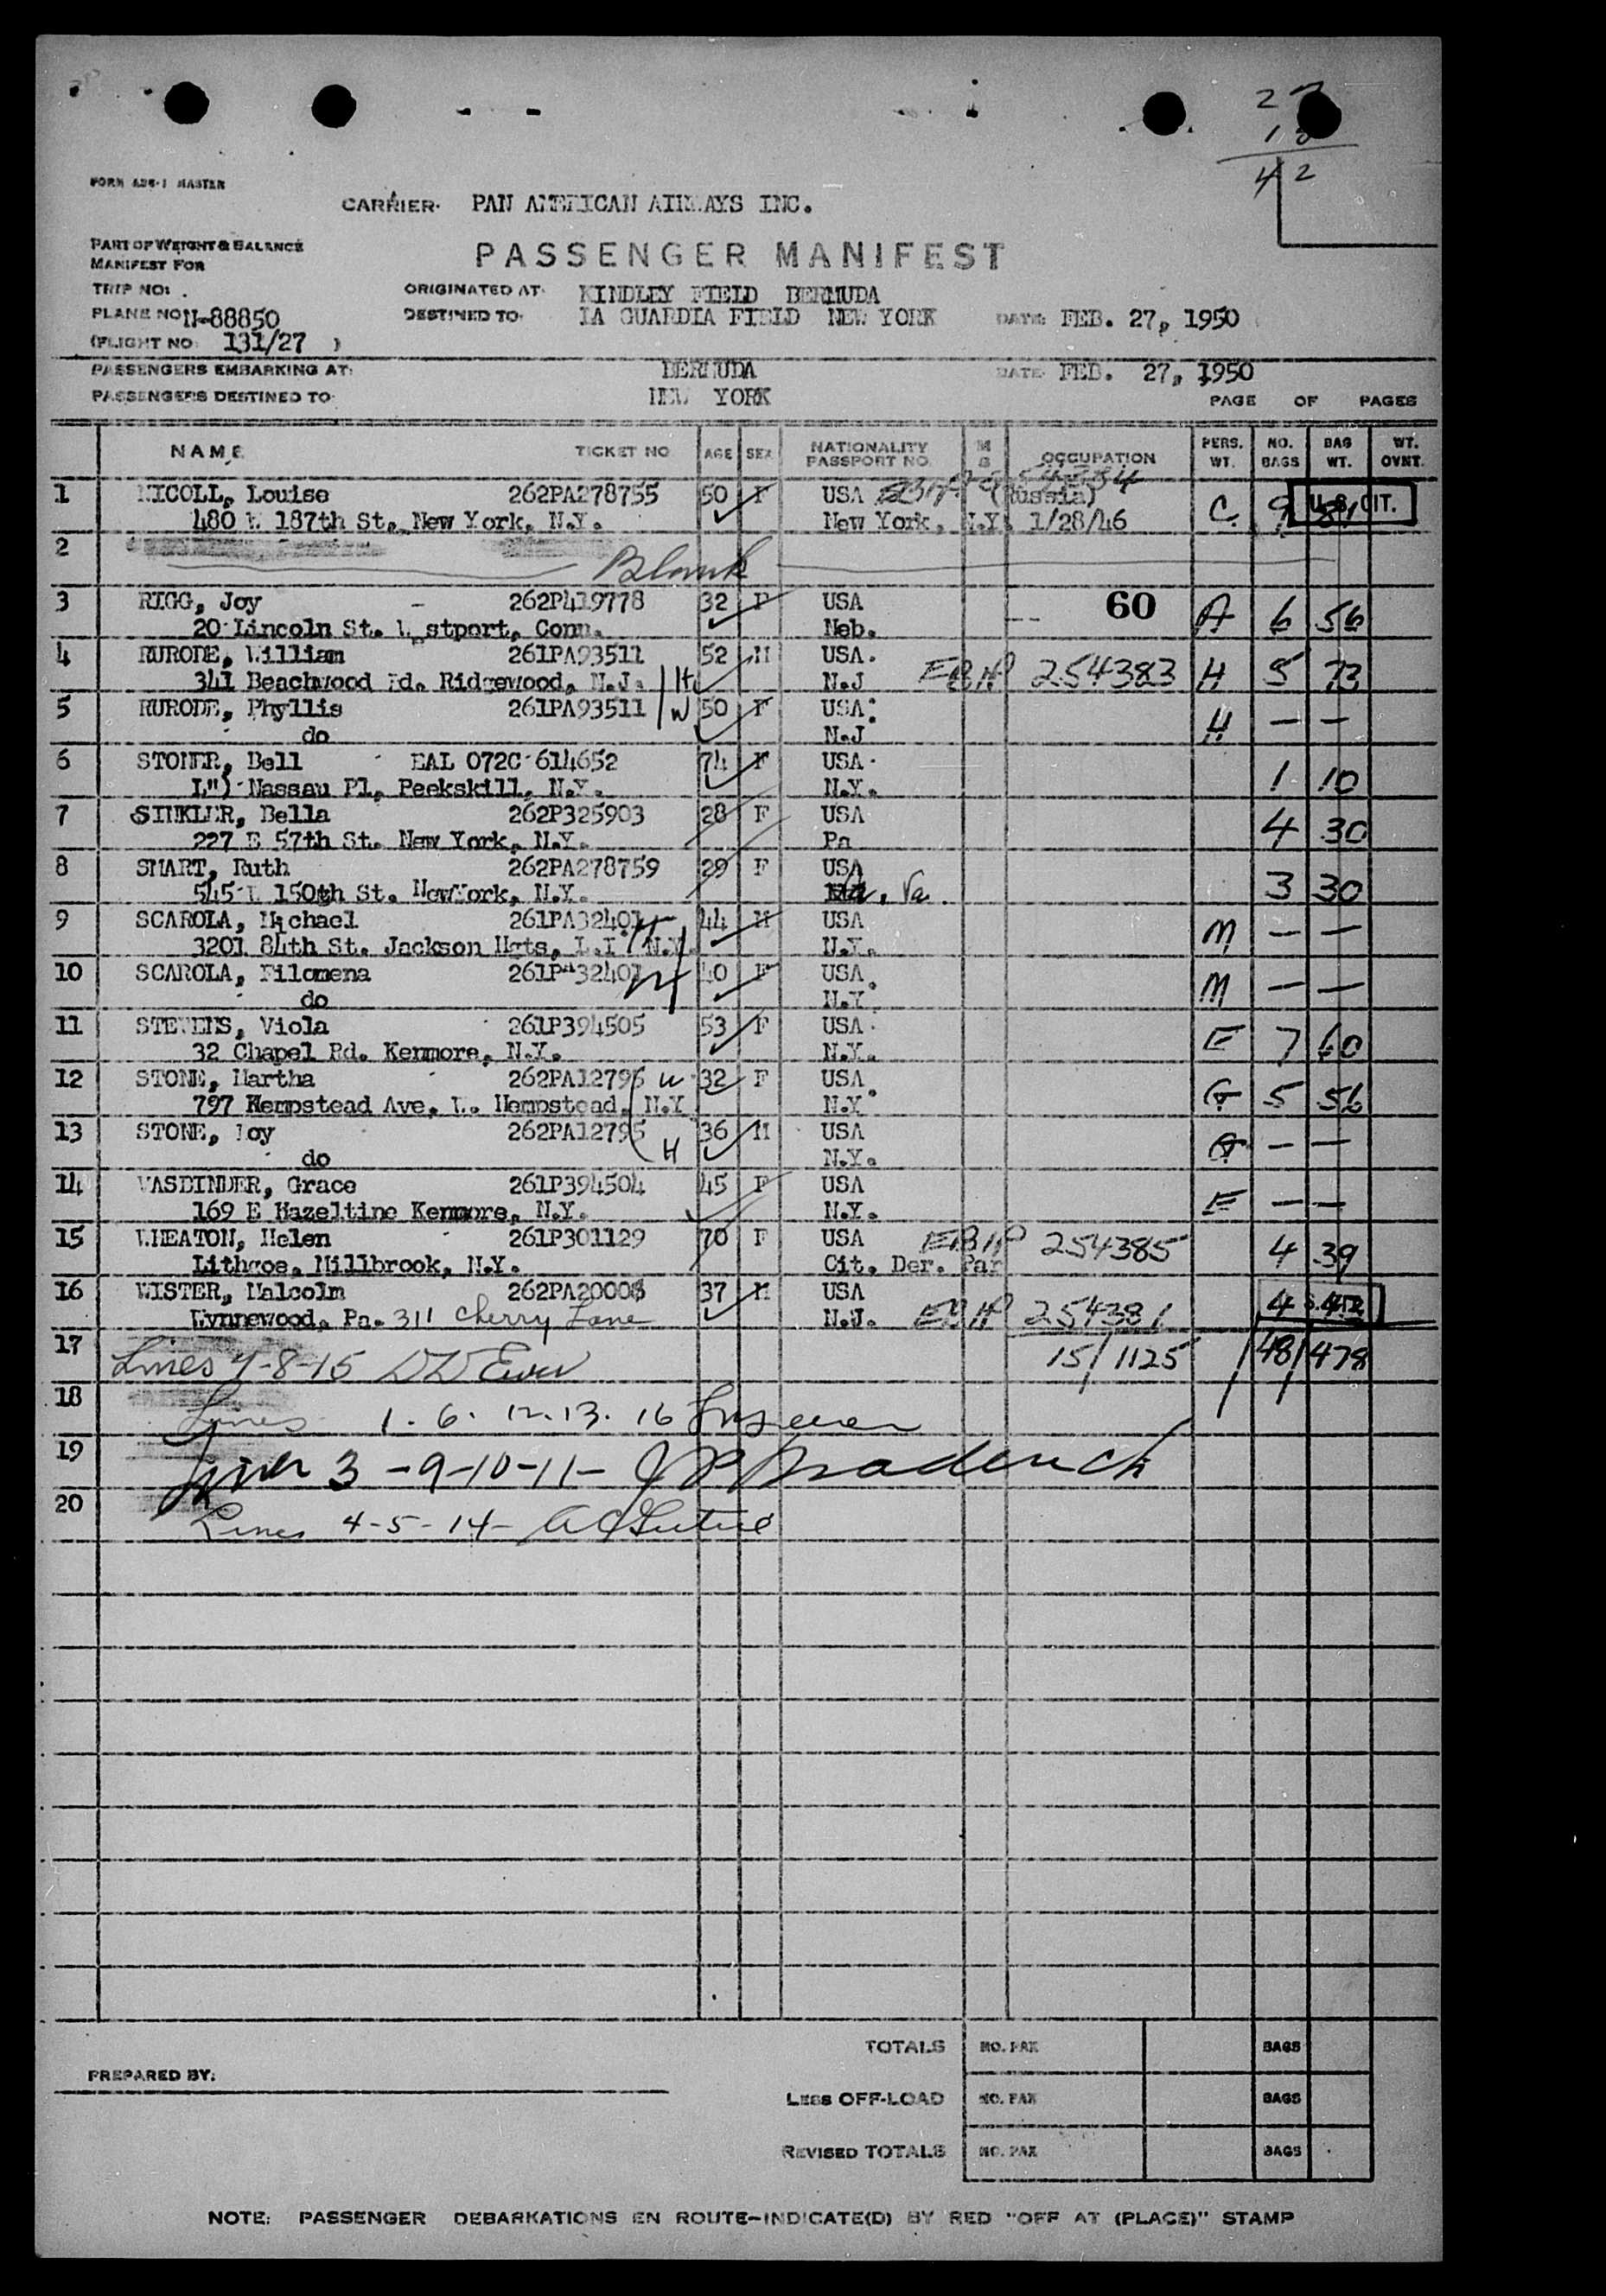 27
18
42
FORM ADS-1 MASTER
CARRIER· PAN AMERICAN AIRWAYS INC.
PART OF WEIGHT & BALANCE
MANIFEST FOR
PASSENGER MANIFEST
TRIP NO:
ORIGINATED AT· KINDLEY FIELD BERMUDA
PLANE NO N-88850
DESTINED TO· LA GUARDIA FIELD NEW YORK DATE: FEB. 27, 1950
(FLIGHT NO: 131/27 )
PASSENGERS EMBARKING AT: BERMUDA DATE· FEB. 27, 1950
PASSENGERS DESTINED TO· NEW YORK
PAGE OF PAGES
NAME TICKET NO AGE SEX NATIONALITY PASSPORT NO. M S OCCUPATION PERS. WT. NO. BAGS BAG WT. WT. OVNT.
1 NICOLL, Louise 262PA278755 50 F USA (Russia)
480 W 187th St., New York, N.Y. New York, N.Y. 1/28/46 C. 9 81 U.S. CIT.
2 Blank
3 RIGG, Joy - 262P419778 32 F USA -- 60
20 Lincoln St. Westport, Conn. Neb. A 6 56
4 RURODE, William 261PA93511 52 M USA.
341 Beachwood Rd. Ridgewood, N.J. H N.J EBHP 254383 H 5 73
5 RURODE, Phyllis 261PA93511 W 50 F USA
do N.J H — —
6 STONER, Bell EAL 072C-614652 74 F USA.
L") Nassau Pl, Peekskill, N.Y. N.Y. 1 10
7 SINKLER, Bella 262P325903 28 F USA
227 E 57th St. New York, N.Y. Pa 4 30
8 SMART, Ruth 262PA278759 29 F USA
545 W 150th St. NewYork, N.Y. Va. 3 30
9 SCAROLA, Michael 261PA32401 H 44 M USA
3201 84th St. Jackson Hgts, L.I. N.Y. N.Y. M — —
10 SCAROLA, Filomena 261PA32401 W 40 F USA
do N.Y. M — —
11 STEVENS, Viola 261P394505 53 F USA.
32 Chapel Rd. Kenmore, N.Y. N.Y. E 7 60
12 STONE, Martha 262PA12795 W 32 F USA
797 Hempstead Ave. W. Hempstead, N.Y N.Y. G 5 56
13 STONE, Roy 262PA12795 H 36 M USA
do N.Y. G — —
14 VASBINDER, Grace 261P394504 45 F USA
169 E Hazeltine Kenmore, N.Y. N.Y. E — —
15 WHEATON, Helen 261P301129 70 F USA EBHP 254385
Lithgos, Millbrook, N.Y. Cit. Der. Par 4 39
16 WISTER, Malcolm 262PA20008 37 M USA
Wynnewood, Pa. 311 Cherry Lane N.J. EBHP 254381 4
17 Lines 7-8-15 15/1125 48/478
18 Lines 1. 6. 12. 13. 16
19 Lines 3 -9-10-11-
20 Lines 4-5-14-
TOTALS NO. PAX BAGS
PREPARED BY:
LESS OFF-LOAD NO. PAX BAGS
REVISED TOTALS NO. PAX BAGS
NOTE: PASSENGER DEBARKATIONS EN ROUTE-INDICATE(D) BY RED "OFF AT (PLACE)" STAMP